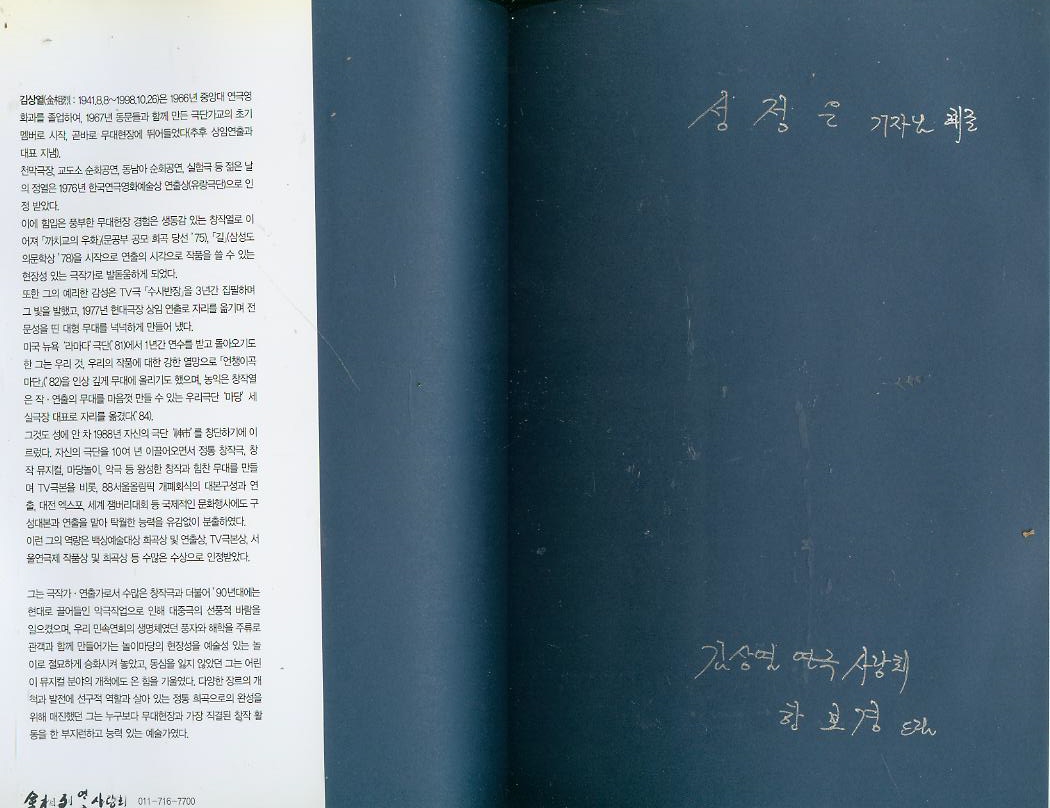 김상열(金相烈 : 1941.8.8~1998.10.26)은 1966년 중앙대 연극영
화과를 졸업하여, 1967년 동문들과 함께 만든 극단가교의 초기
멤버로 시작, 곧바로 무대현장에 뛰어들었다(추후 상임연출과
대표 지냄).
천막극장, 교도소 순회공연, 동남아 순회공연, 실험극 등 젊은 날
의 정열은 1976년 한국연극영화예술상 연출상(유랑극단)으로 인
정 받았다.
이에 힘입은 풍부한 무대현장 경험은 생동감 있는 창작열로 이
어져 「까치교의 우화」(문공부 공모 희곡 당선 '75), 「길」(삼성도
의문학상 '78)을 시작으로 연출의 시각으로 작품을 쓸 수 있는
현장성 있는 극작가로 발돋움하게 되었다.
또한 그의 예리한 감성은 TV극 「수사반장」을 3년간 집필하며
그 빛을 발했고, 1977년 현대극장 상임 연출로 자리를 옮기며 전
문성을 띤 대형 무대를 넉넉하게 만들어 냈다.
미국 뉴욕 '라마다' 극단('81)에서 1년간 연수를 받고 돌아오기도
한 그는 우리 것, 우리의 작품에 대한 강한 열망으로 「언챙이곡
마단」('82)을 인상 깊게 무대에 올리기도 했으며, 농익은 창작열
은 작·연출의 무대를 마음껏 만들 수 있는 우리극단 '마당' 세
실극장 대표로 자리를 옮겼다('84).
그것도 성에 안 차 1988년 자신의 극단 '神市'를 창단하기에 이
르렀다. 자신의 극단을 10여 년 이끌어오면서 정통 창작극, 창
작 뮤지컬, 마당놀이, 악극 등 왕성한 창작과 힘찬 무대를 만들
며 TV극본을 비롯, 88서울올림픽 개폐회식의 대본구성과 연
출, 대전 엑스포, 세계 잼버리대회 등 국제적인 문화행사에도 구
성대본과 연출을 맡아 탁월한 능력을 유감없이 분출하였다.
이런 그의 역량은 백상예술대상 희곡상 및 연출상, TV극본상, 서
울연극제 작품상 및 희곡상 등 수많은 수상으로 인정받았다.
그는 극작가·연출가로서 수많은 창작극과 더불어 '90년대에는
현대로 끌어들인 악극작업으로 인해 대중극의 선풍적 바람을
일으켰으며, 우리 민속연희의 생명체였던 풍자와 해학을 주류로
관객과 함께 만들어가는 놀이마당의 현장성을 예술성 있는 놀
이로 절묘하게 승화시켜 놓았고, 동심을 잃지 않았던 그는 어린
이 뮤지컬 분야의 개척에도 온 힘을 기울였다. 다양한 장르의 개
혁과 발전에 선구적 역할과 살아 있는 정통 희곡으로의 완성을
위해 매진했던 그는 누구보다 무대현장과 가장 직결된 창작 활
동을 한 부지런하고 능력 있는 예술가였다.
金相烈 연 사랑회 011-716-7700
성 정 은 기자님 께
김상열 연극 사랑회
한 보 경 드림